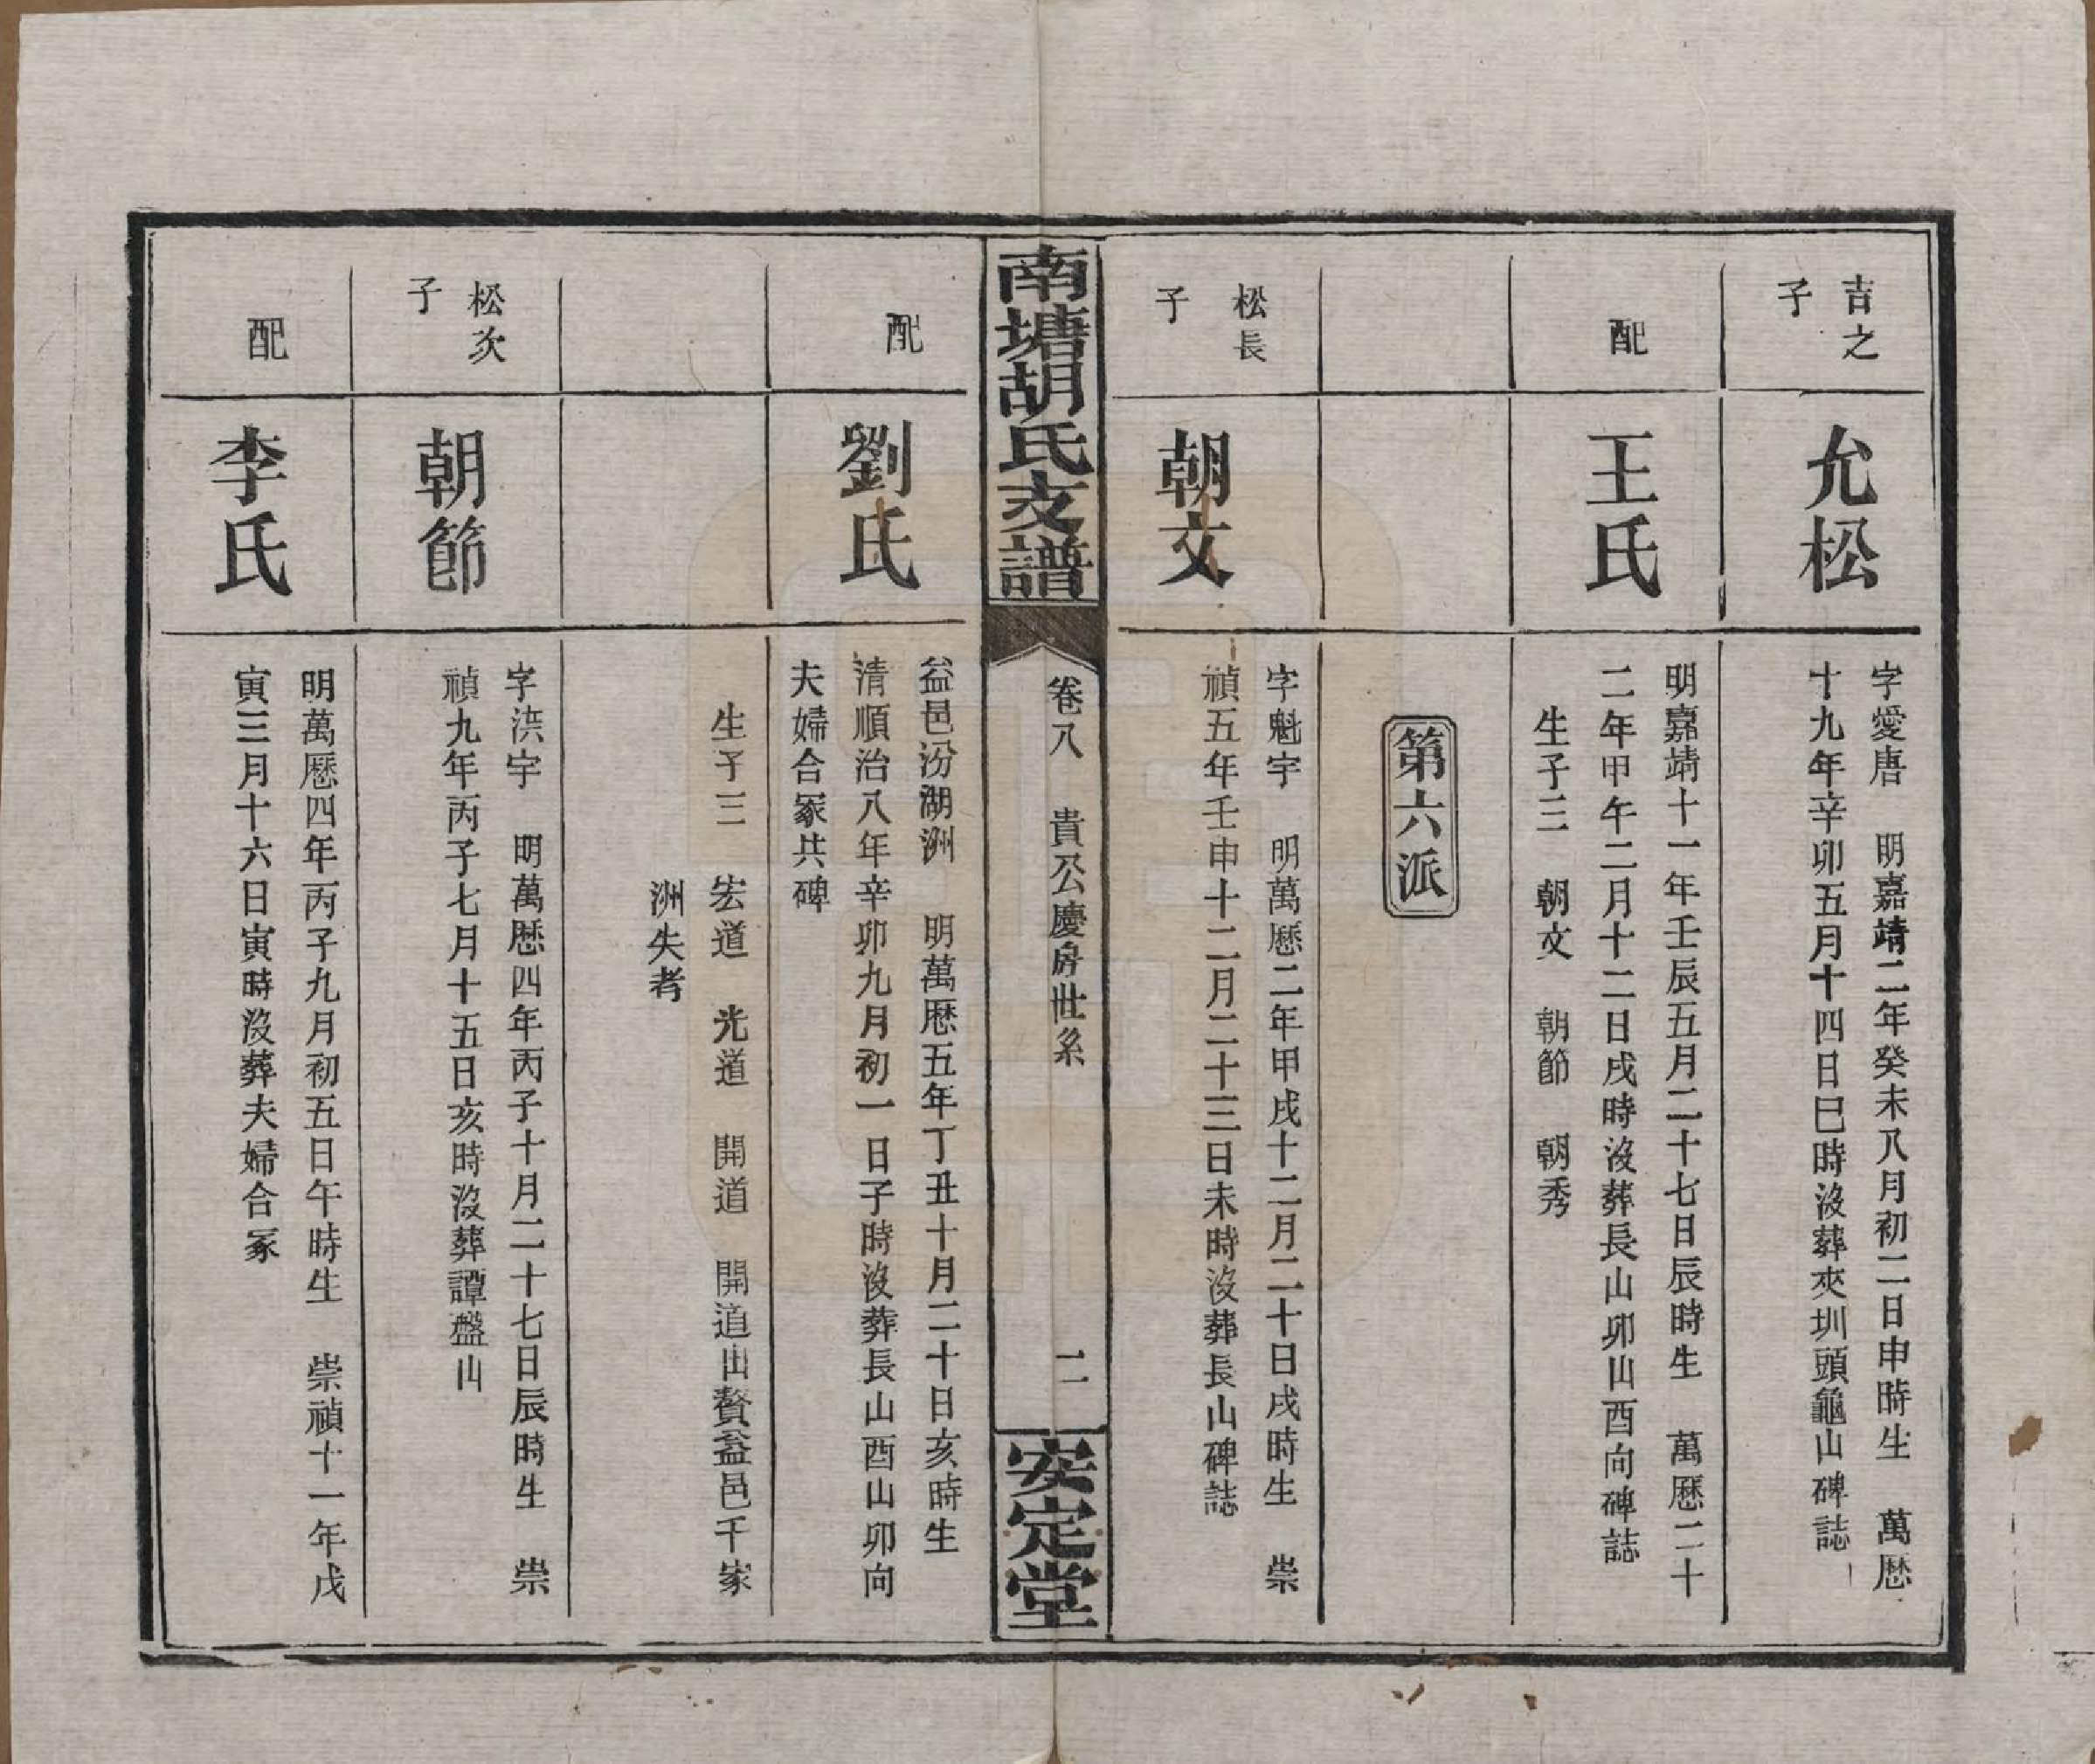 吉之
子
允松
字愛唐　明嘉靖二年癸未八月初二日申時生　萬厯
十九年辛卯五月十四日巳時沒葬夾圳頭龜山碑誌
配
王氏
明嘉靖十一年壬辰五月二十七日辰時生　萬厯二十
二年甲午二月十二日戌時沒葬長山卯山酉向碑誌
生子三　朝文　朝節　朝秀
第六派
松長
子
朝文
字魁宇　明萬厯二年甲戌十二月二十日戌時生　崇
禎五年壬申十二月二十三日未時沒葬長山碑誌
南塘胡氏支譜
卷八　貴公慶房世系
二
安定堂
配
劉氏
益邑汾湖洲　明萬厯五年丁丑十月二十日亥時生
清順治八年辛卯九月初一日子時沒葬長山酉山卯向
夫婦合冢共碑
生子三　宏道　光道　開道　開道出贅益邑千家
洲失考
松次
子
朝節
字洪宇　明萬厯四年丙子十月二十七日辰時生　崇
禎九年丙子七月十五日亥時沒葬譚盤山
配
李氏
明萬厯四年丙子九月初五日午時生　崇禎十一年戊
寅三月十六日寅時沒葬夫婦合冢